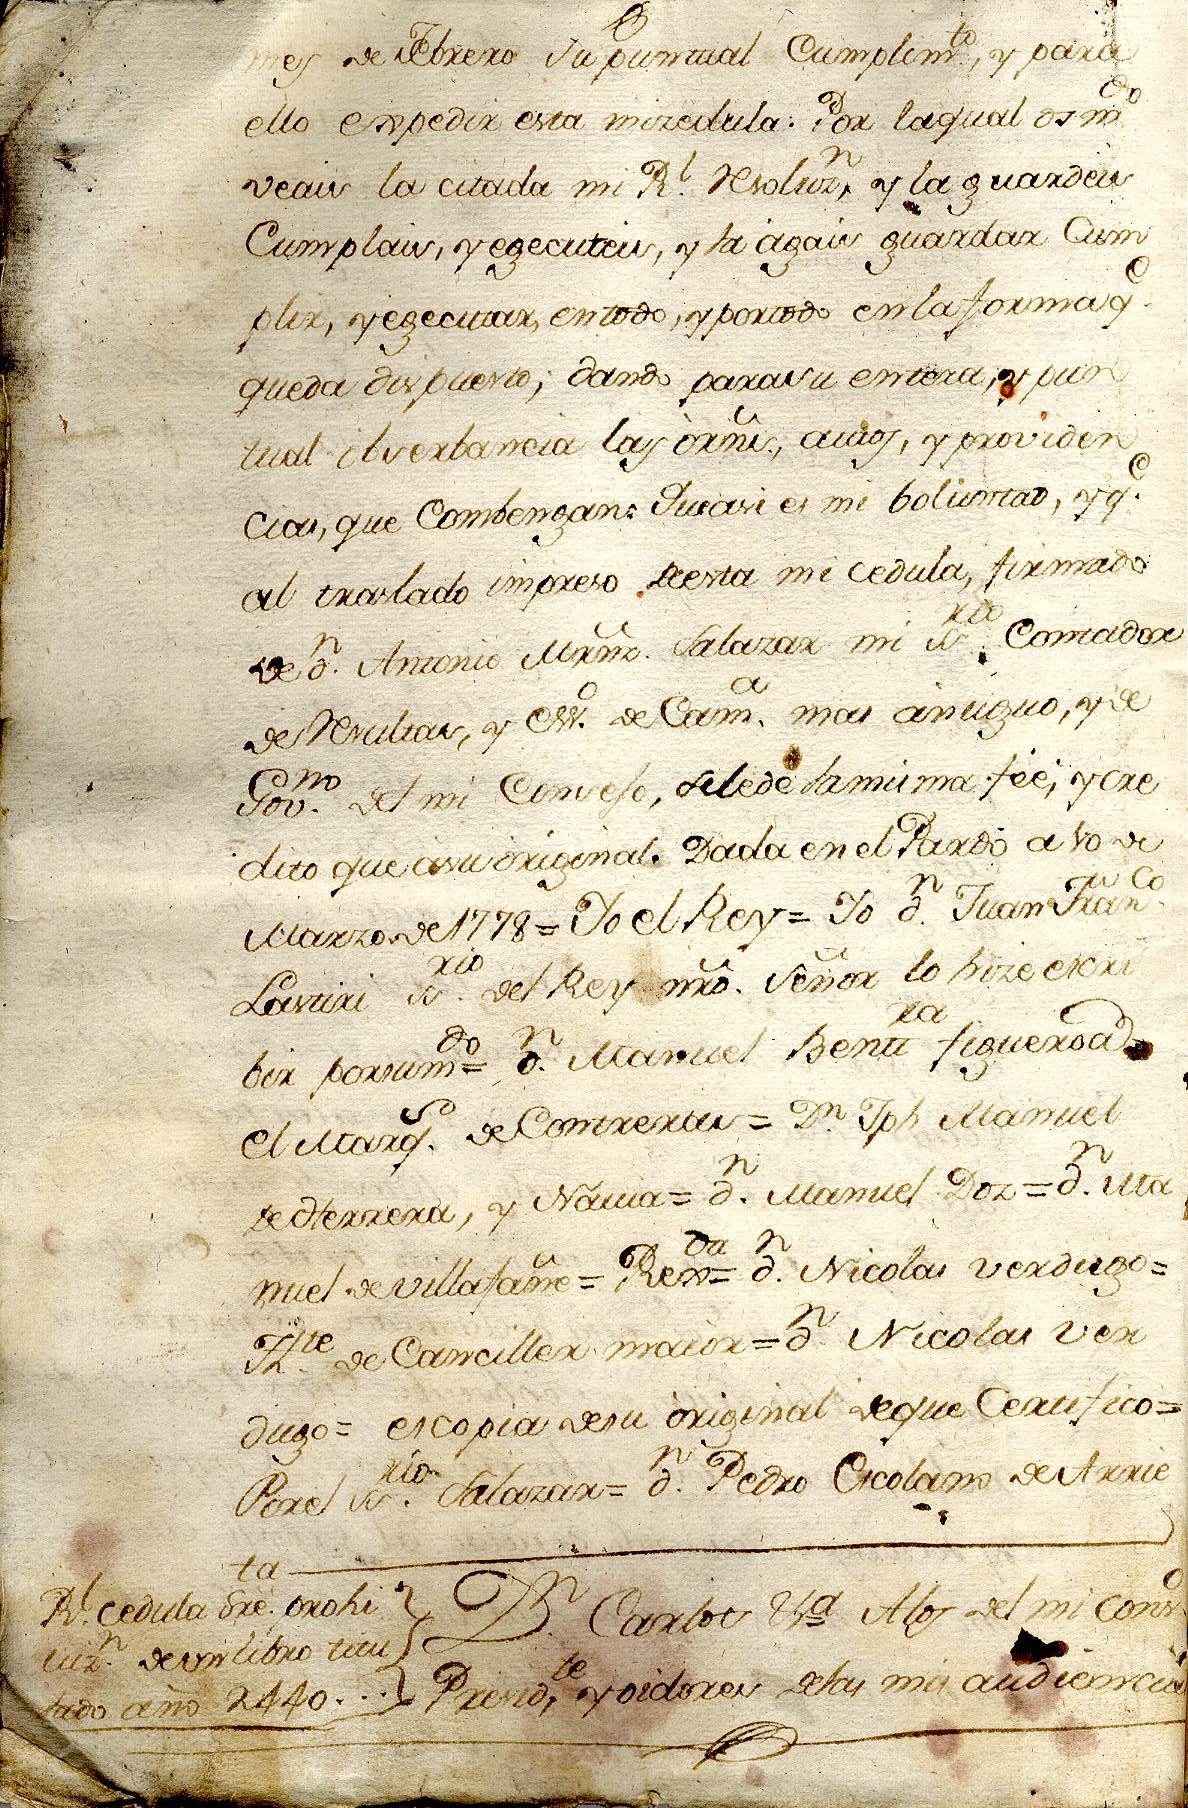 mes de Febrero su puntual Cumplimto, y para
ello expedir esta mi zedula: Por laqual os mdo
veais la citada mi Rl. Resoluzn, y la guardeis
Cumplais, y egecuteis, y la àgais guardar Cum
plir, y egecutar, entodo, y portodo en la forma qe.
queda dispuesto; dando parasu entera, y pun
tual observancia las òrñs., autos, y providen
cias, que Combengan: Queasi es mi boluntad, y qe.
al traslado impreso deesta mi cedula, firmado
de dn. Antonio Mrñz. Salazar mi Srio. Contador
de Resultas, y Essno. de Cama. mas antiguo, y de
Govno. del mi Consejo, selede lamisma feé, y cre
dito que àsu òriginal. Dada en el Pardo a 10 de
Marzo de 1778 = Yo el Rey = Yo dn. Juan Franco.
Lastiri Srio. del Rey nrõ. Señor lo hize escri
bir porsu mdo = dn. Manuel Bentura figueroa =
el Marqs. de Contreras = Dn. Jph Manuel
de Herrera, y Navia = dn. Manuel Doz = dn. Ma
nuel de Villafañe = Rexda = dn. Nicolas Verdugo =
Thte. de Canciller maior = dn. Nicolas Ver
dugo = es copia desu òriginal deque Certifico =
Porel Srio. Salazar = dn. Pedro Escolano de Arrie
ta
Rl. cedula sre. prohi
vizn. de un libro titu
lado año 2440...
Dn. Carlos Va Alos del mi Conso
Presidte, y oidores delas mis audiencias